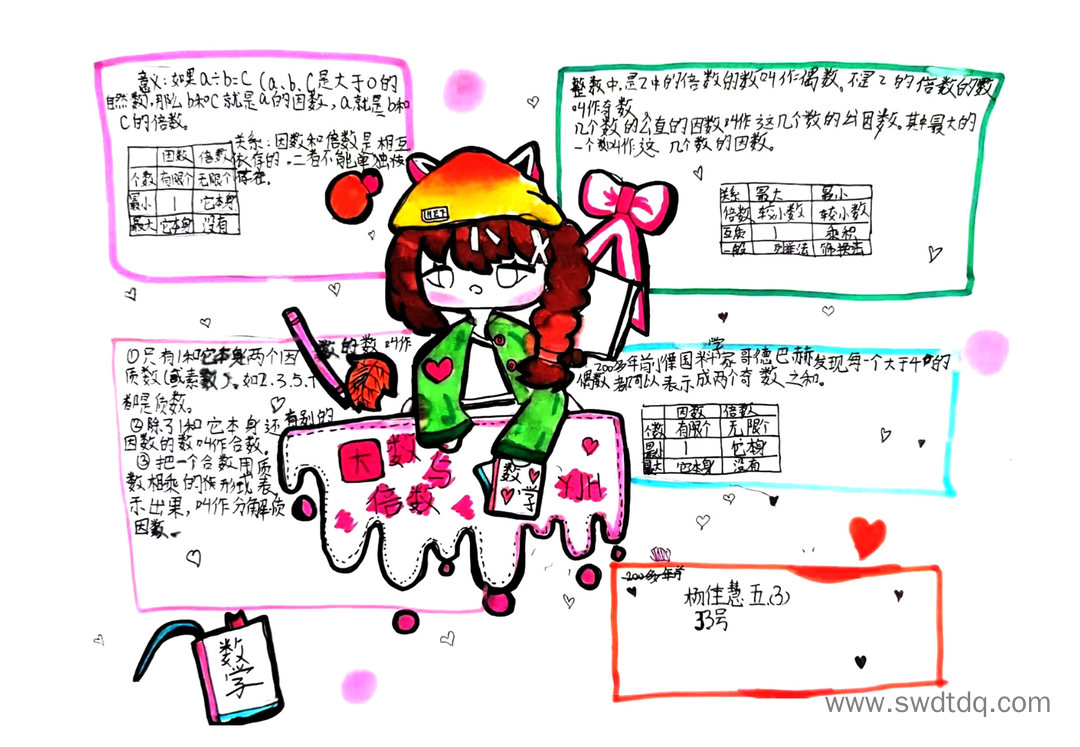 意义：如果a÷b=C（a、b、C是大于0的
自然数，那么b和C就是a的因数，a就是b和
C的倍数。
关系：因数和倍数是相互
依存的，二者不能单独
存在。
因数 倍数
个数 有限个 无限个
最小 1 它本身
最大 它本身 没有
整数中，是2的倍数的数叫作偶数。不是2的倍数的数
叫作奇数
几个数的公直的因数叫作这几个数的公因数。其中最大的
一个叫作这几个数的因数。
关系 最大 最小
倍数 较小数 较小数
互质 1 乘积
一般
HEI
①只有1和它本身两个因数的数叫作
质数（或素数）。如2.3.5.7
都是质数。
②除了1和它本身还有别的
因数的数叫作合数。
③把一个合数用质
数相乘的候形式表
示出果，叫作分解质
因数。
数与
倍数
数学
YJH
200多年前，德国科学家哥德巴赫发现每一个大于4的
偶数都可以表示成两个奇数之和。
因数 倍数
个数 有限个 无限个
最小 1 它本身
最大 它本身 没有
200多年前
杨佳慧 五.(3)
33号
数学
www.swdtdq.com